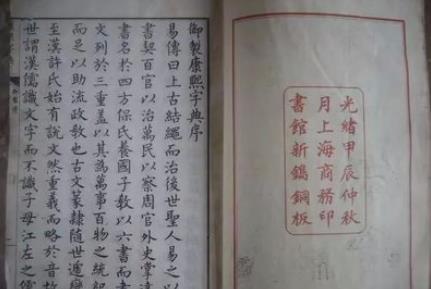 光緒甲辰仲秋
月上海商務印
書館新鐫銅板
御製康熙字典序
易傳曰上古結繩而治後世聖人易之以
書契百官以治萬民以察周官外史掌達
書名於四方保氏養國子教以六書而
文列於三重蓋以其為萬事百物之統紀
而足以助流政教也古文篆隸隨世遞變
至漢許氏始有說文然重義而略於音故
世謂漢儒識文字而不識子母江左之儒